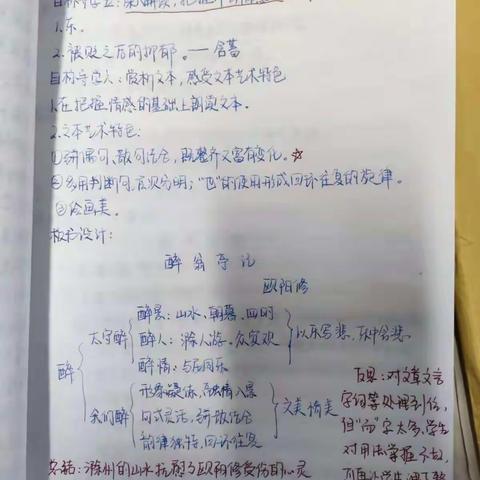 1.乐。
2.被贬之后的抑郁。——含蓄
目标导学六:赏析文本,感受文本艺术特色
1.在把握情感的基础上朗读文本。
2.文本艺术特色:
①骈偶句、散句结合,既整齐又富有变化。☆
②多用判断句,层次分明;"也"的使用形成回环往复的旋律。
③绘画美。
板书设计:
醉翁亭记
欧阳修
醉景:山水、朝暮、四时
太守醉 醉人:滁人游、众宾欢 以乐写悲,乐中含悲
醉 醉情:与民同乐
形象凝练,融情入景
美的醉 句式灵活,骈散结合 文美情美
韵律独特,回环往复
反思:对文章文言
字词等处理到位,
但"而"字太多,学生
对用法掌握不太
总结:滁州的山水抚慰了欧阳修受伤的心灵